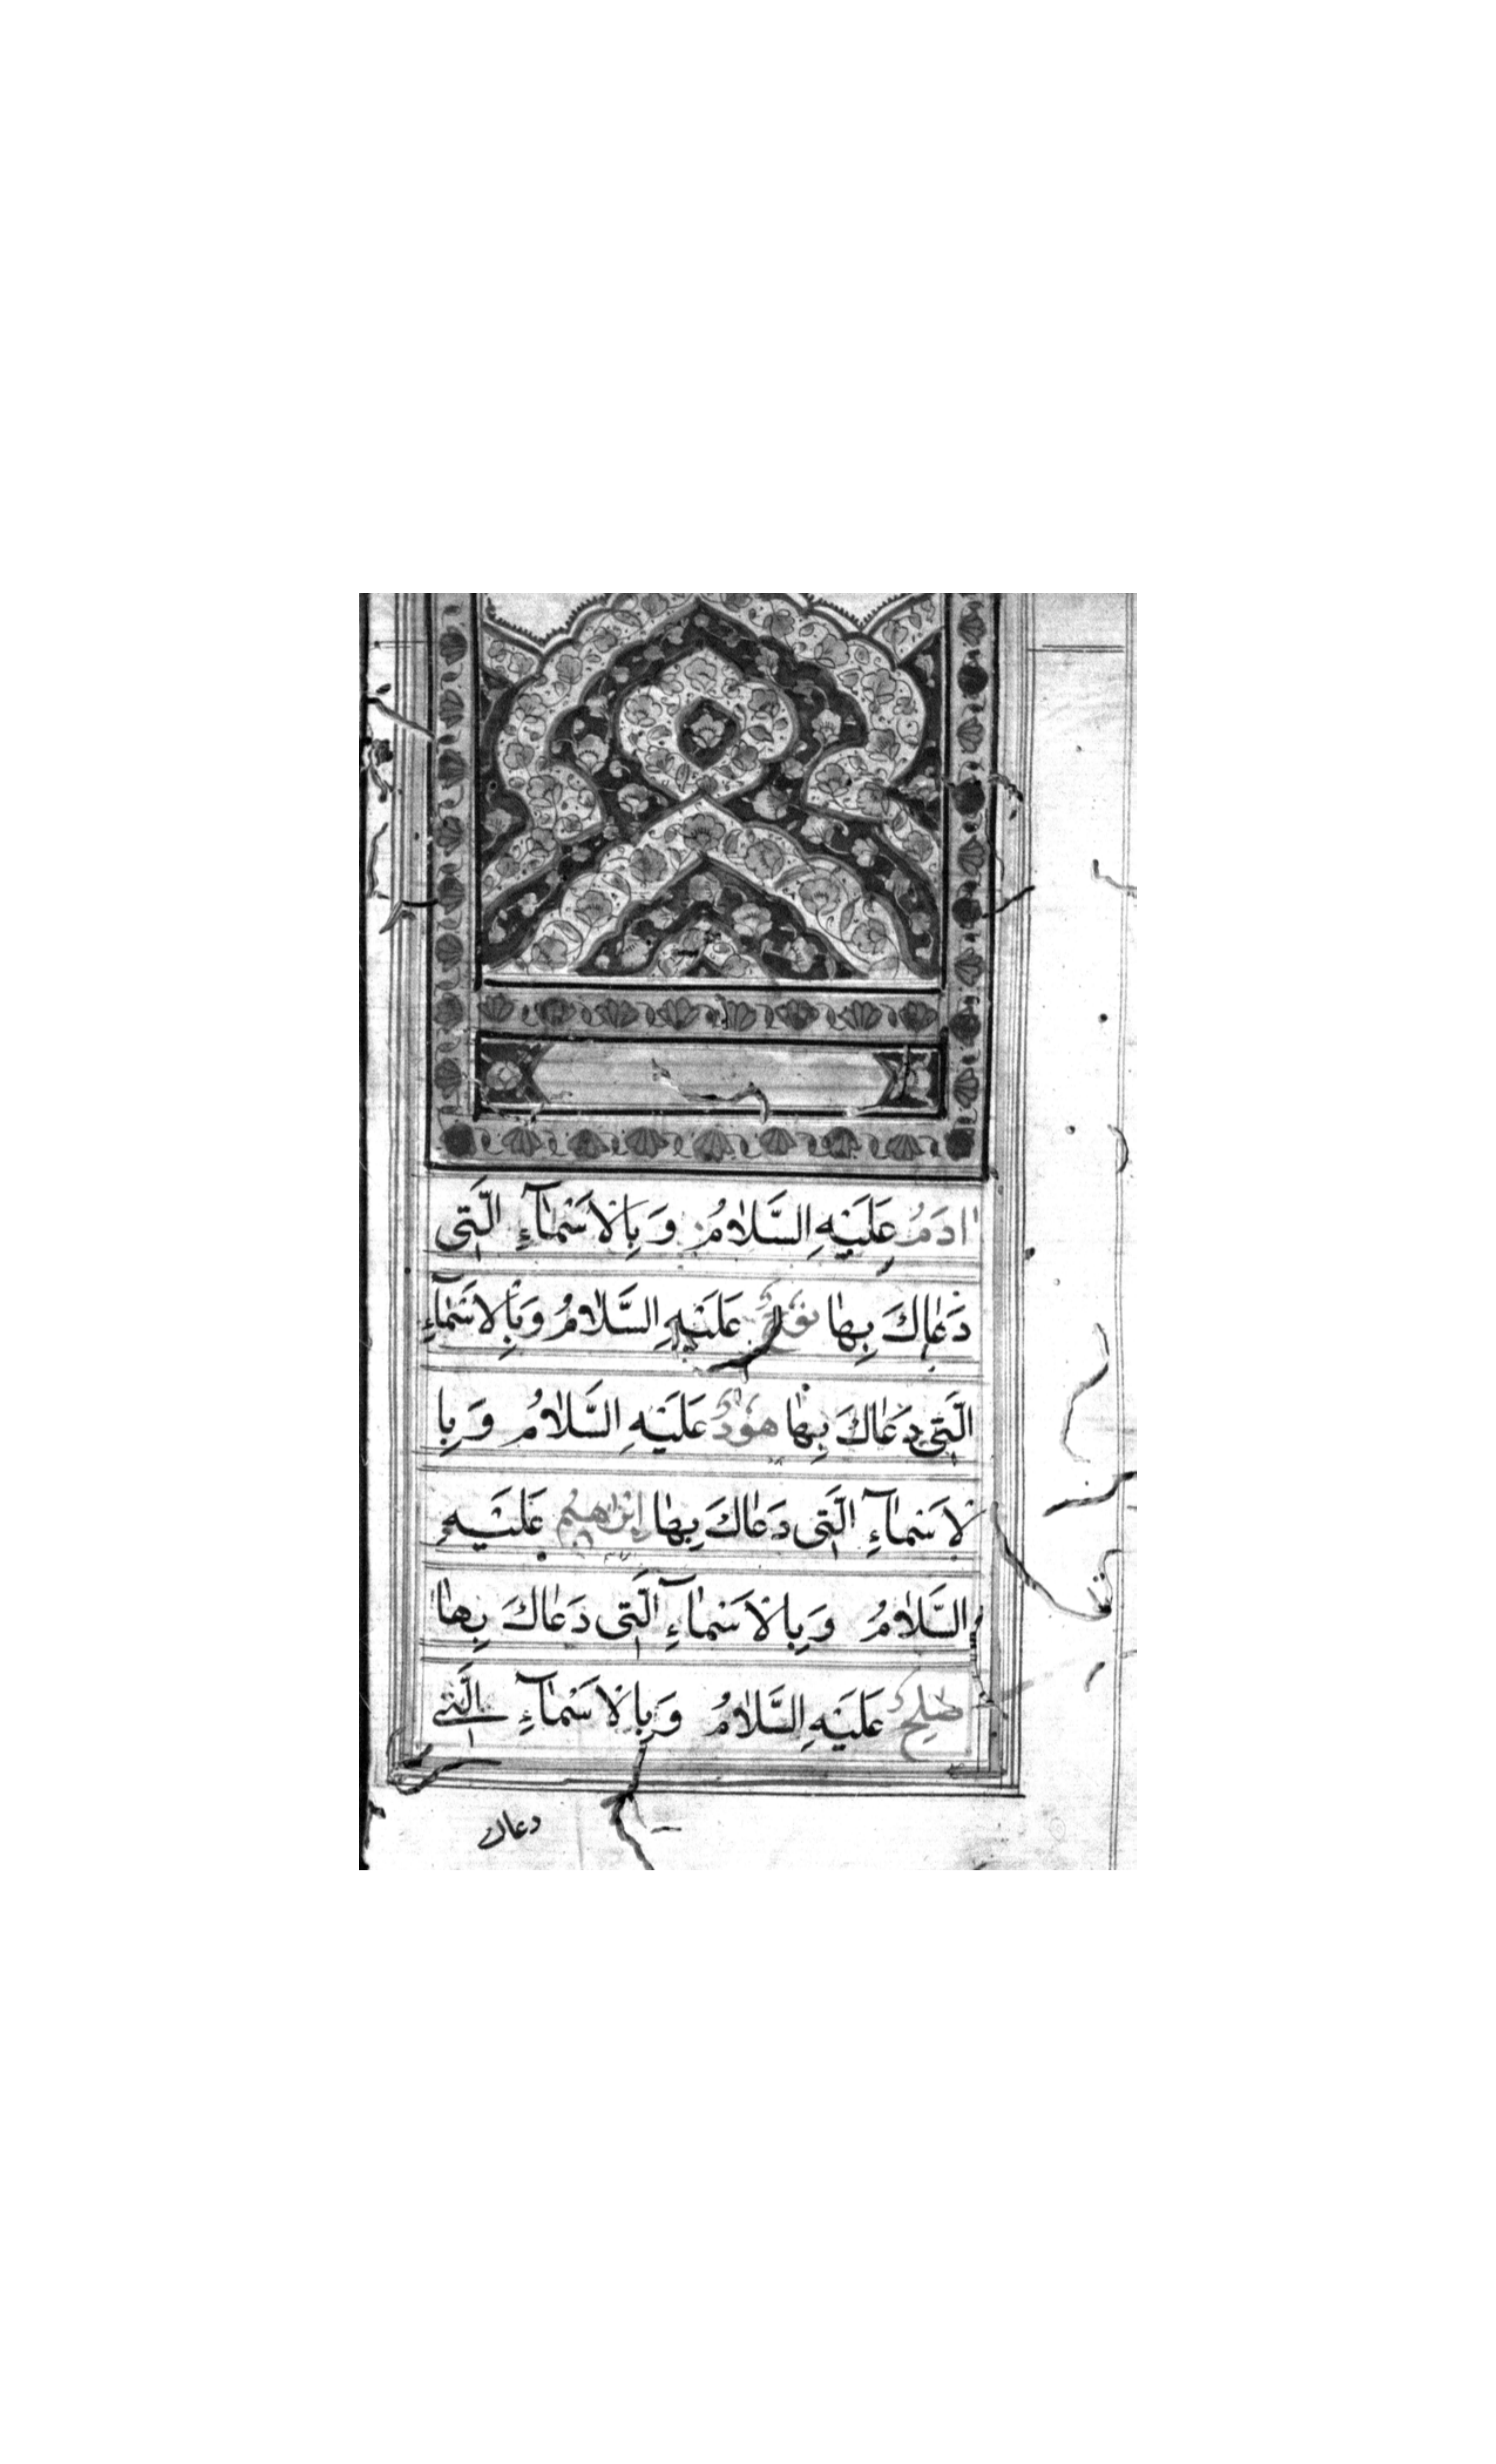 اٰدَمُ عَلَيْهِ السَّلَامُ وَبِالْاَسْمَآءِ الَّتِی
دَعَاكَ بِهَا نُوْحٌ عَلَيْهِ السَّلَامُ وَبِالْاَسْمَآءِ
الَّتِی دَعَاكَ بِهَا هُوْدٌ عَلَيْهِ السَّلَامُ وَبِا
لْاَسْمَآءِ الَّتِی دَعَاكَ بِهَا اِبْرَاهِيْمُ عَلَيْهِ
السَّلَامُ وَبِالْاَسْمَآءِ الَّتِی دَعَاكَ بِهَا
صٰلِحٌ عَلَيْهِ السَّلَامُ وَبِالْاَسْمَآءِ الَّتِی
دعاك